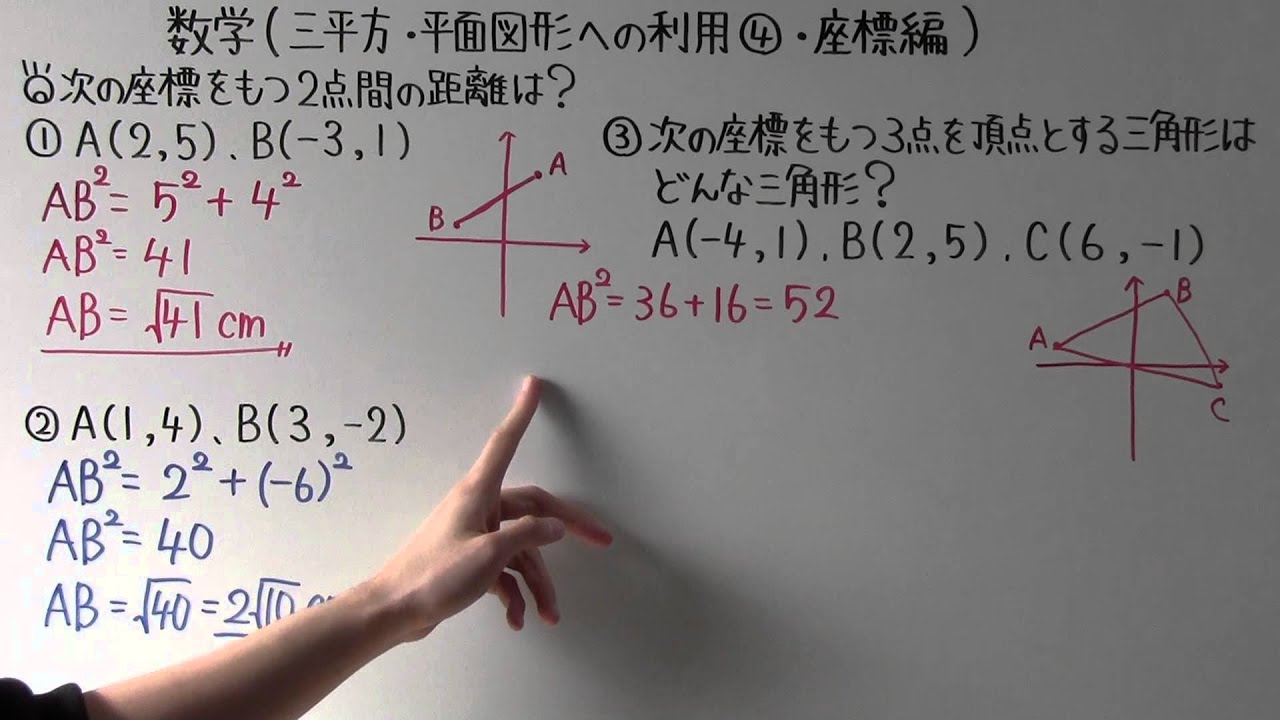 数学(三平方・平面図形への利用④・座標編)
次の座標をもつ2点間の距離は?
① A(2,5)、B(-3,1)
AB²= 5²+ 4²
AB²= 41
AB= √41 cm
A
B
② A(1,4)、B(3,-2)
AB²= 2²+(-6)²
AB²= 40
AB=√40=2√10
③ 次の座標をもつ3点を頂点とする三角形は
どんな三角形?
A(-4,1)、B(2,5)、C(6,-1)
AB²=36+16=52
B
A
C